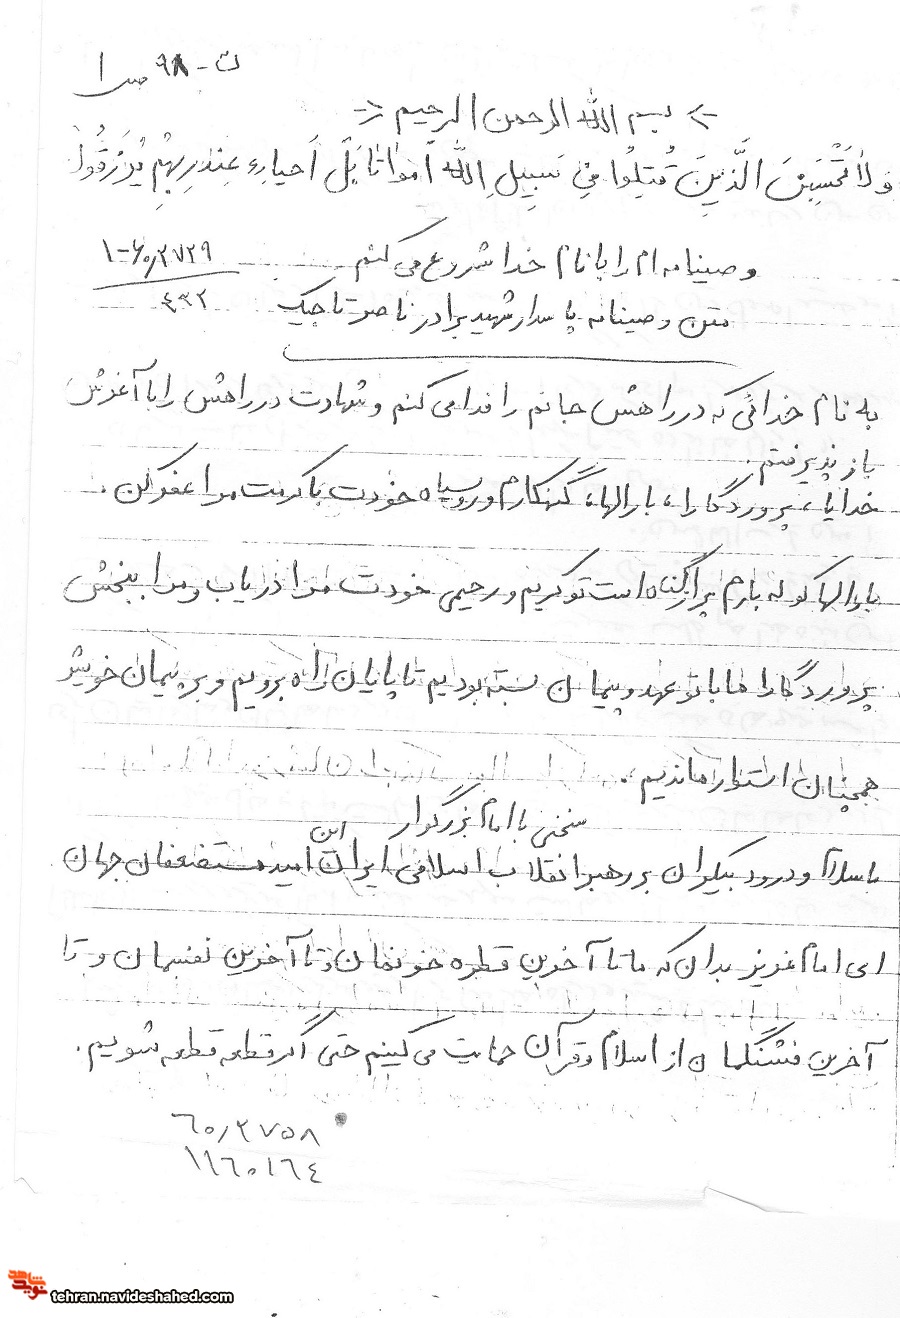 ت - ٩٨ ص ١
بسم الله الرحمن الرحیم
وَلاٰ تَحْسَبَنَ الَّذینَ قُتِلُوا فِی سَبیلِ اللهِ اَمواتا بَلْ اَحیاءِ عِندَ رَبِهِمْ یُرْزَقُونْ
وصیتنامه ام را با نام خدا شروع می کنم
١-٦٠/٢٧٢٩
٤٣٢
متن وصیتنامه پاسدار شهید برادر ناصر تاجیک
به نام خدائی که در راهش جانم را فدا می کنم و شهادت در راهش را با آغوش
باز پذیرفتم.
خدایا، پروردگارا، بارالها، گنهکارم و روسیاه خودت با کرمت مرا عفو کن.
بارالها کوله بارم پر از گناه است تو کریم و رحیمی خودت مرا دریاب و مرا ببخش
پروردگارا ما با تو عهد و پیمان بسته بودیم تا پایان راه برویم و بر پیمان خویش
همچنان استوار ماندیم.
سخنی با امام بزرگوار
با سلام و درود بیکران بر رهبر انقلاب اسلامی ایران این امید مستضعفان جهان
ای امام عزیز بدان که ما تا آخرین قطره خونمان و تا آخرین نفسمان و تا
آخرین فشنگمان از اسلام و قرآن حمایت می کنیم حتی اگر قطعه قطعه شویم.
٦٠/٢٧٥٨
١١٦٠١٦٤
نوید شاهد
tehran.navideshahed.com